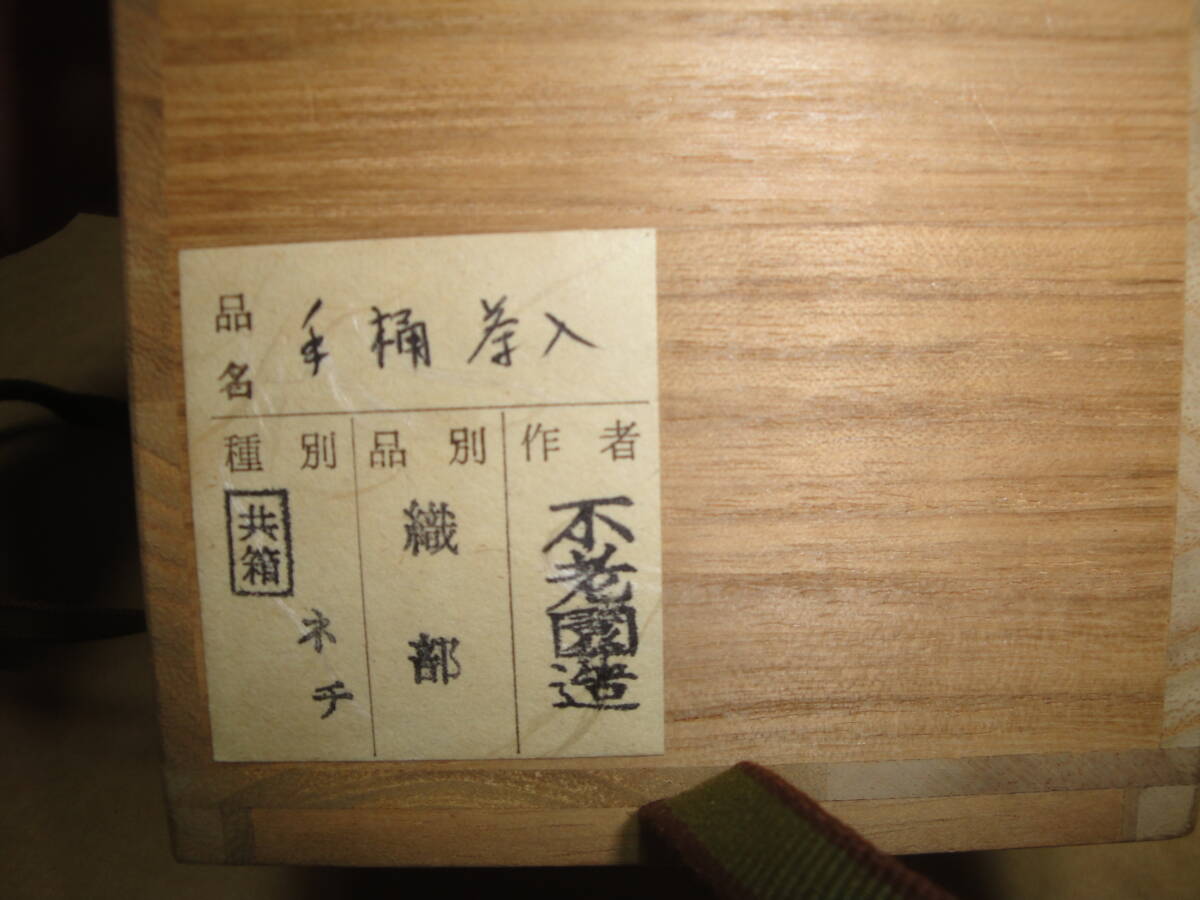 品名 手桶茶入
種別 品別 作者
共箱 ネチ
織部
不老園造